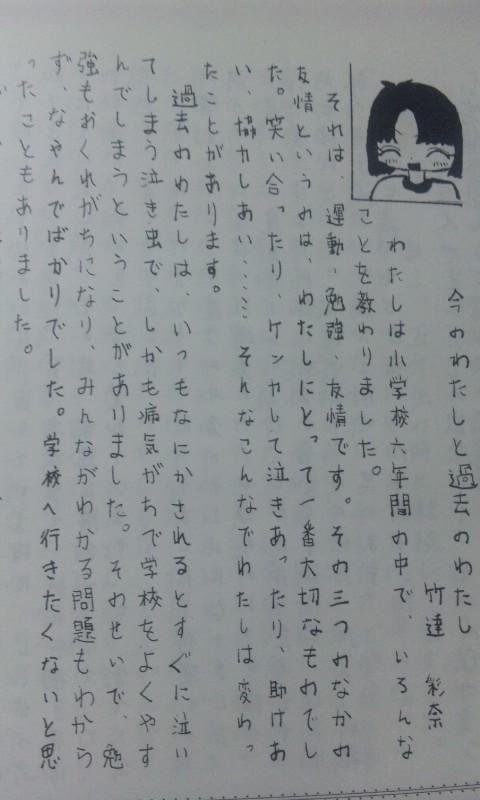 今のわたしと過去のわたし
竹達 彩奈
わたしは小学校六年間の中で、いろんな
ことを教わりました。
それは、運動、勉強、友情です。その三つのなかの
友情というのは、わたしにとって一番大切なものでし
た。笑い合ったり、ケンカして泣きあったり、助けあ
い、協力しあい……そんなこんなでわたしは変わっ
たことがあります。
過去のわたしは、いつもなにかされるとすぐに泣い
てしまう泣き虫で、しかも病気がちで学校をよくやす
んでしまうということがありました。そのせいで、勉
強もおくれがちになり、みんながわかる問題もわから
ず、なやんでばかりでした。学校へ行きたくないと思
ったこともありました。